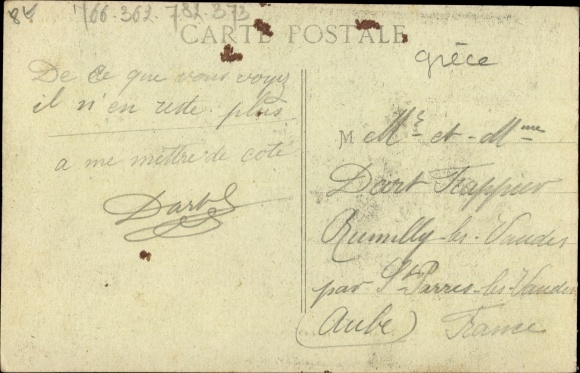 84 766.362.782.373
CARTE POSTALE
grèce
De ce que vous voyez
il n'en reste plus
a me mettre de coté
Dart
M Mr et Mme
Dart Frappier
Rumilly-les-Vaudes
par St Parres-les-Vaudes
(Aube) France